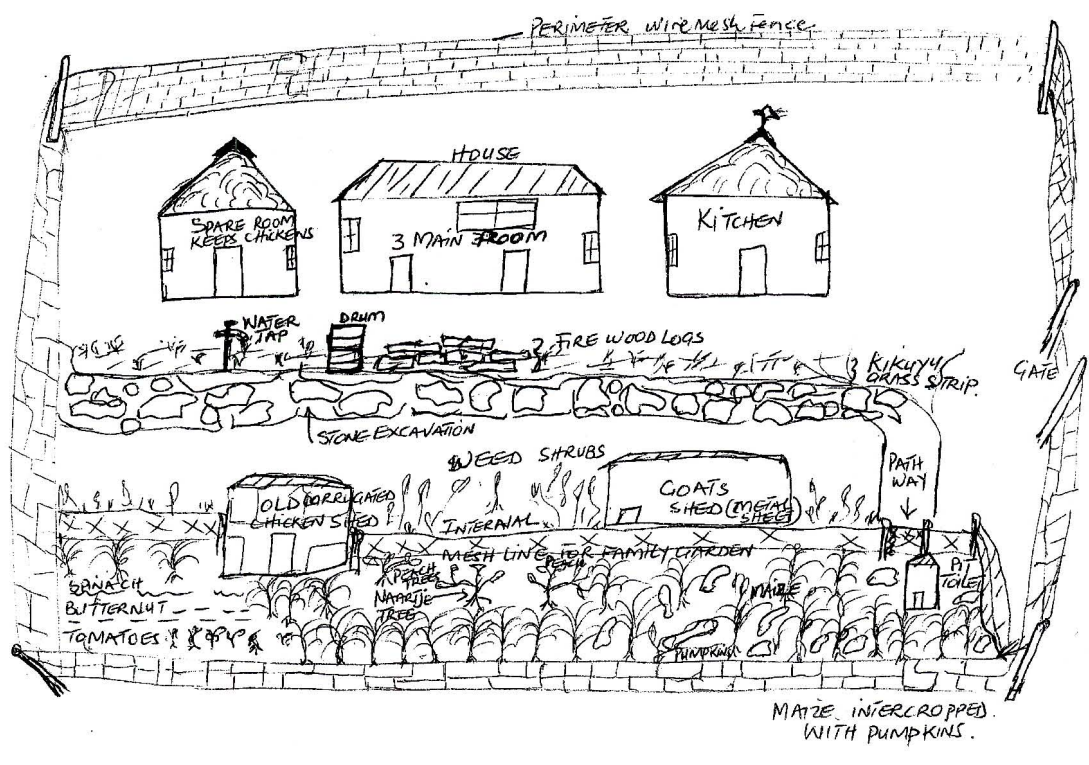 PERIMETER WIRE MESH FENCE
HOUSE
SPARE ROOM
KEEPS CHICKENS
3 MAIN ROOM
KITCHEN
WATER
TAP
DRUM
FIRE WOOD LOGS
KIKUYU
GRASS STRIP.
GATE
STONE EXCAVATION
WEED SHRUBS
PATH
WAY
OLD CORRUGATED
CHICKEN SHED
GOATS
SHED (METAL
SHEET)
INTERNAL
MESH LINE FOR FAMILY GARDEN
PEACH
TREES
PEACH
NAARTJE
TREE
MAIZE
PIT
TOILET
SPINACH
BUTTERNUT
TOMATOES
PUMPKINS
MAIZE INTERCROPPED.
WITH PUMPKINS.